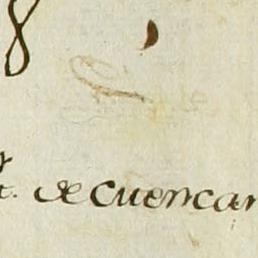 8
t. de cuencan